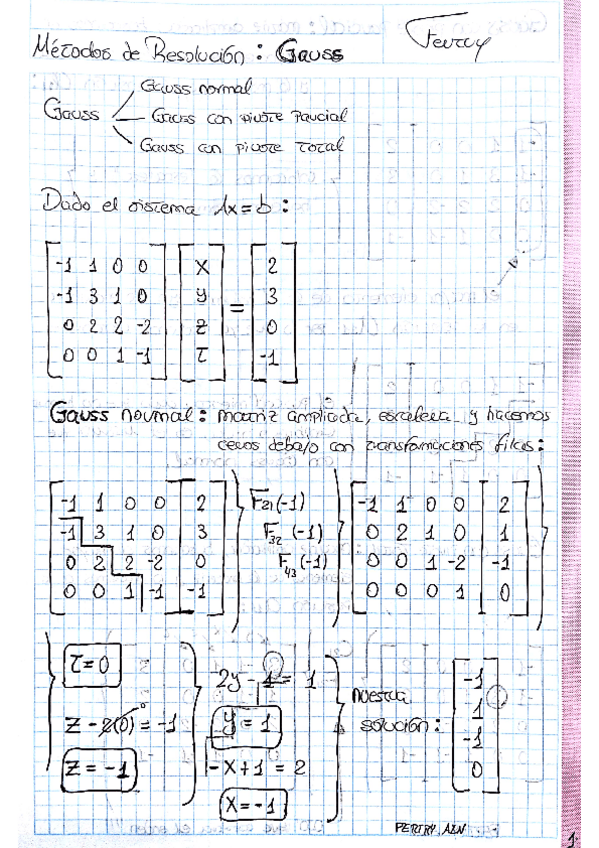 Métodos de Resolución : Gauss
Gauss
Gauss normal
Gauss con pivote Parcial
Gauss con pivote total
Dado el sistema Ax=b :
-1 1 0 0 x 2
-1 3 1 0 y = 3
0 2 2 -2 z 0
0 0 1 -1 τ -1
Gauss normal : matriz ampliada, escalera y hacemos
ceros debajo con transformaciones filas :
-1 1 0 0 2 F21(-1) -1 1 0 0 2
-1 3 1 0 3 F32(-1) 0 2 1 0 1
0 2 2 -2 0 F43(-1) 0 0 1 -2 -1
0 0 1 -1 -1 0 0 0 1 0
τ=0
z - 2(0) = -1
z = -1
2y - 1 = 1
y = 1
-x+1 = 2
x = -1
nuestra
solución :
-1
1
-1
0
1